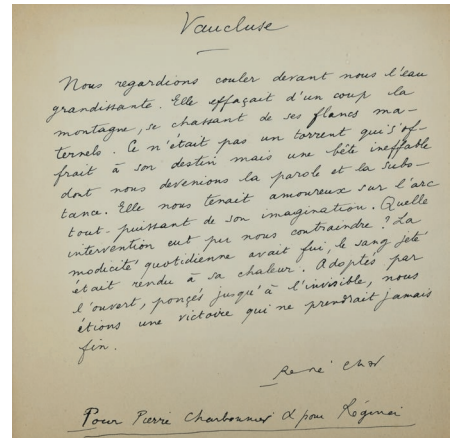 Vaucluse
Nous regardions couler devant nous l'eau
grandissante. Elle effaçait d'un coup la
montagne, se chassant de ses flancs ma-
ternels. Ce n'était pas un torrent qui s'of-
frait à son destin mais une bête ineffable
dont nous devenions la parole et la subs-
tance. Elle nous tenait amoureux sur l'arc
tout-puissant de son imagination. Quelle
intervention eut pu nous contraindre? La
modicité quotidienne avait fui, le sang jeté
était rendu à sa chaleur. Adoptés par
l'ouvert, poncés jusqu'à l'invisible, nous
étions une victoire qui ne prendrait jamais
fin.
René Char
Pour Pierre Charbonnier & pour